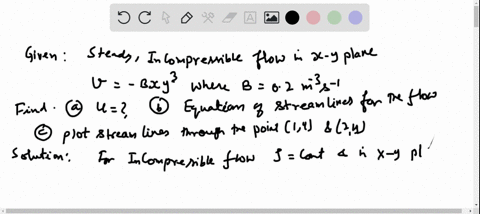 Given: Steady, Incompressible flow in x-y plane
V = -Bxy³ where B = 0.2 m⁻³s⁻¹
Find: ⓐ u=? ⓑ Equations of streamlines for the flow
ⓒ plot streamlines through the point (1,4) & (2,4)
Solution: For Incompressible flow ρ = const & in x-y pl